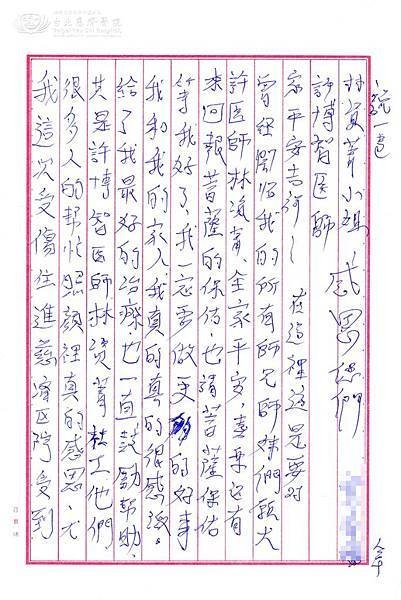 台北慈濟醫院
Taipei Tzu Chi Hospital
我這次受傷住進慈濟医院受到
很多人的帮忙照顧裡真的感恩.尤
其是許博智医師林資菁社工他們
給了我最好的治療也一直鼓励帮助.
我和我的家人我真的真的很感激。
等我好了、我一定会做更的好事
來回報菩薩的保佑也請菩薩保佑
許医師林資菁、全家平安,喜乐还有
曾經關怀我的所有師兄師姊們願大
家平安吉祥! 在這裡还是要对
許博智医師
林資菁小姐、感恩您們